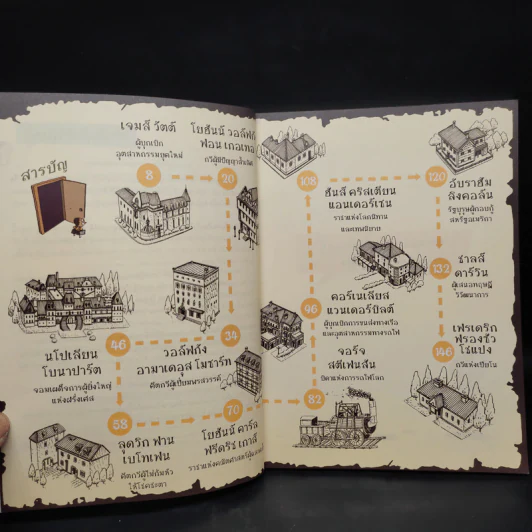 สารบัญ
เจมส์ วัตต์
ผู้บุกเบิก
อุตสาหกรรมยุคใหม่
8
โยฮันน์ วอล์ฟกัง
ฟอน เกอเทอ
กวีผู้มีปัญญาล้ำเลิศ
20
34
วอล์ฟกัง
อามาเดอุส โมซาร์ท
คีตกวีผู้เปี่ยมพรสวรรค์
46
นโปเลียน
โบนาปาร์ต
จอมเผด็จการผู้ยิ่งใหญ่
แห่งฝรั่งเศส
58
ลุดวิก ฟาน
เบโทเฟน
คีตกวีผู้ให้กับหัว
70
โยฮันน์ คาร์ล
ฟรีดริช เกาส์
82
จอร์จ
สตีเฟนสัน
บิดาแห่งการรถไฟโลก
96
คอร์เนเลียส
แวนเดอร์บิลต์
ผู้บุกเบิกการขนส่งทางเรือ
และอุตสาหกรรมทางรถไฟ
108
ฮันส์ คริสเตียน
แอนเดอร์เซน
ราชาแห่งโลกนิทาน
และเทพนิยาย
120
อับราฮัม
ลิงคอล์น
รัฐบุรุษผู้กอบกู้
สหรัฐอเมริกา
132
ชาลส์
ดาร์วิน
ผู้เสนอทฤษฎี
วิวัฒนาการ
146
เฟรเดริก
ฟรองซัว
โชแปง
กวีแห่งเปียโน